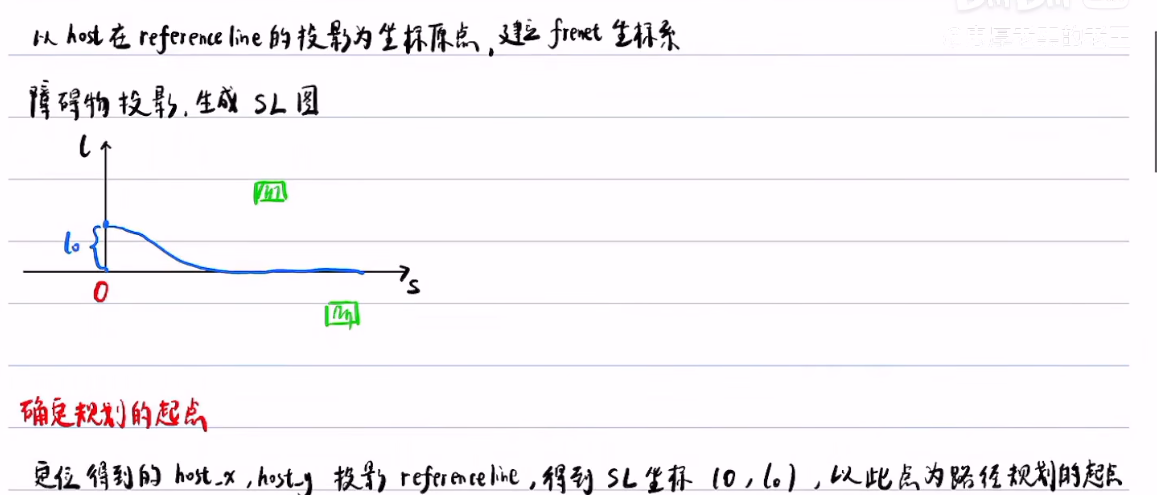 以 host 在 reference line 的投影为坐标原点，建立 frenet 坐标系
障碍物投影，生成 SL 图
l
l₀
0
s
确定规划的起点
定位得到的 host_x, host_y 投影 reference line，得到 SL 坐标 (0, l₀)，以此点为路径规划的起点